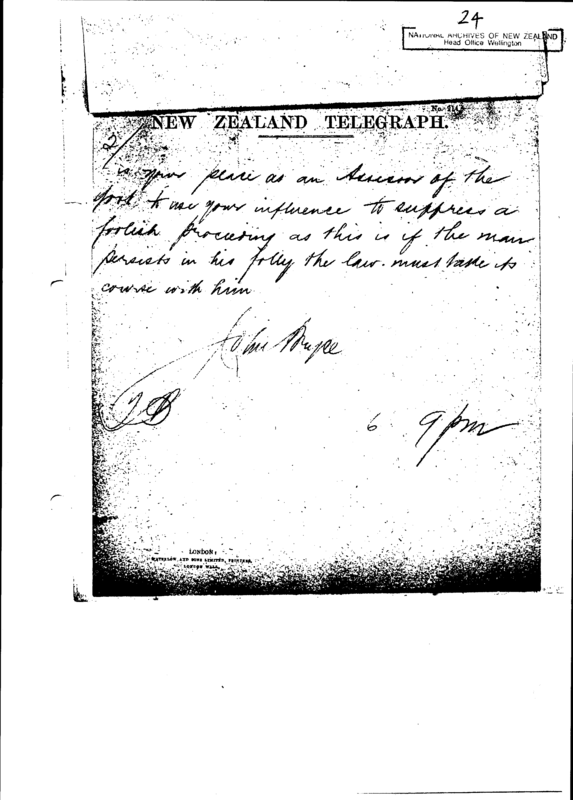 24
NATIONAL ARCHIVES OF NEW ZEALAND
Head Office Wellington
NEW ZEALAND TELEGRAPH.
2/
is your place as an Assessor of the
to use your influence to suppress a
foolish proceeding as this is if the man
persists in his folly the law must take its
course with him
John
6 9 pm
LONDON:
WATERLOW AND SONS LIMITED, PRINTERS,
LONDON WALL.